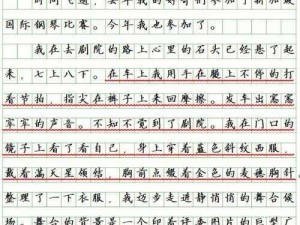 国际钢琴比赛。今年我也参加了。
我在去剧院的路上心里的石头已经悬了起
来，七上八下。在车上我用手在腿上不停的打
着节拍，指尖在裤子上来回摩擦。发车出窸窸
窣窣的声音。不知不觉到了剧院。我在门口的
镜子上看了看自己，身上穿着蓝色斜纹西服，
戴着满天星领结，胸前点缀着金色的麦穗胸针，
整理了一下衣服，我迈步走进静悄悄的舞台候
场。舞台的背景是一个印着评委图片的巨型广